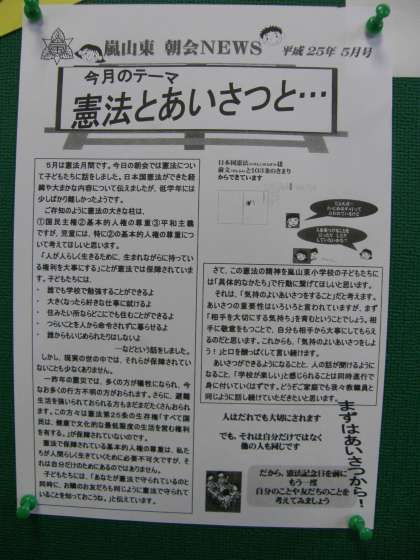 嵐山東 朝会NEWS
平成25年 5月号
今月のテーマ
憲法とあいさつと…
５月は憲法月間です。今日の朝会では憲法につい
て子どもたちに話をしました。日本国憲法ができた経
緯や大まかな内容について伝えましたが、低学年には
少しばかり難しかったようです。
ご存知のように憲法の大きな柱は、
①国民主権②基本的人権の尊重③平和主義
ですが、児童には、特に②の基本的人権の尊重につ
いて考えてほしいと思います。
「人が人らしく生きるために、生まれながらに持ってい
る権利を大事にする」ことが憲法では保障されていま
す。子どもたちには、
・ 誰でも学校で勉強することができるよ
・ 大きくなったら好きな仕事に就けるよ
・ 住みたい所ならどこにでも住むことができるよ
・ つらいことを人から命令されずに暮らせるよ
・ 誰からもいじめられたりはしないよ
―などという話をしました。
しかし、現実の世の中では、それらが保障されてい
ないことも少なくありません。
一昨年の震災では、多くの方が犠牲になられ、今
なお多くの行方不明の方がおられます。さらに、避難
生活を強いられておられる方もまだまだたくさんおられ
ます。この方々は憲法第25条の生存権「すべて国
民は、健康で文化的な最低限度の生活を営む権利
を有する。」が保障されていないのです。
憲法で保障されている基本的人権の尊重は、私た
ちが人間らしく生きていくために必要不可欠ですが、そ
れは自分だけのためにあるのではありません。
子どもたちには、「あなたが憲法で守られているのと
同時に、お隣のお友だちも同じように憲法で守られて
いることを知っておこうね。」と伝えています。
日本国憲法
前文と103条のきまり
からできています
さて、この憲法の精神を嵐山東小学校の子どもたちに
は「具体的なかたち」で行動に繋げてほしいと思います。
それは、「気持のよいあいさつをすること」だと考えます。
あいさつの重要性はいろいろと言われていますが、まず
「相手を大切にする気持ち」を育むということでしょう。相
手に敬意をもつことで、自分も相手から大事にしてもらえ
るのだと思います。これからも、「気持のよいあいさつをし
よう！」と口を酸っぱくして言い続けます。
あいさつができるようになること、人の話が聞けるように
なること、「学校が楽しい」と感じられることは同時進行で
身に付いていくはずです。どうぞご家庭でも我々教職員と
同じように話し続けていただきたいと思います。
人はだれでも大切にされます
でも、それは自分だけではなく
他の人も同じです
だから、憲法記念日を前に
もう一度
自分のことや友だちのことを
考えてみましょう
まずはあいさつから！